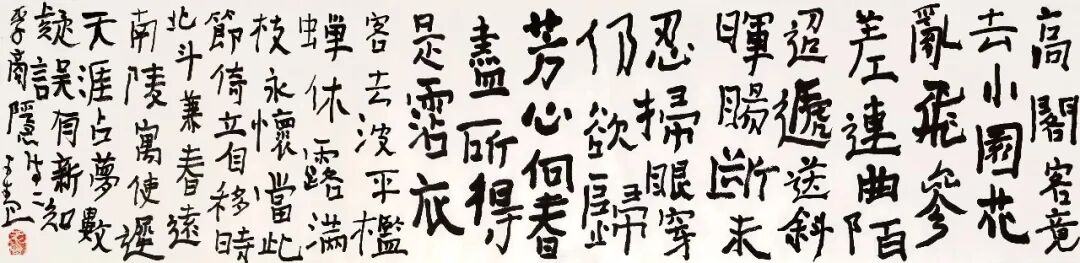 高閣客竟
去小園花
亂飛參
差連曲陌
迢遞送斜
暉腸斷未
忍掃眼穿
仍欲歸
芳心向春
盡所得
是霑衣
客去波平檻
蟬休露滿
枝永懷當此
節倚立自移時
北斗兼春遠
南陵寓使遲
天涯占夢數
疑誤有新知
李商隱詩二